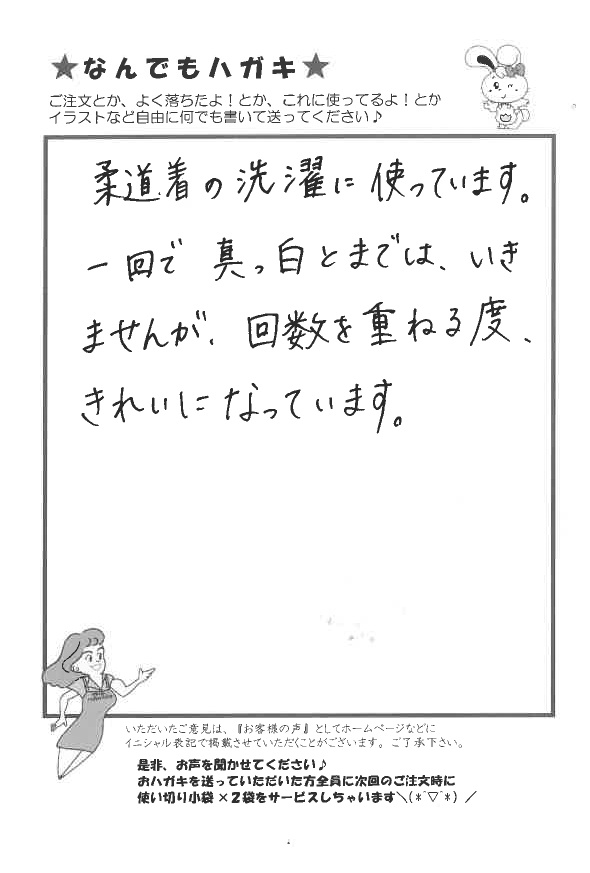 ★なんでもハガキ★
ご注文とか、よく落ちたよ！とか、これに使ってるよ！とか
イラストなど自由に何でも書いて送ってください♪
柔道着の洗濯に使っています。
一回で真っ白とまでは、いき
ませんが、回数を重ねる度、
きれいになっています。
いただいたご意見は、『お客様の声』としてホームページなどに
イニシャル表記で掲載させていただくことがございます。ご了承下さい。
是非、お声を聞かせてください♪
おハガキを送っていただいた方全員に次回のご注文時に
使い切り小袋×2袋をサービスしちゃいます＼(*ˆ▽ˆ*)／